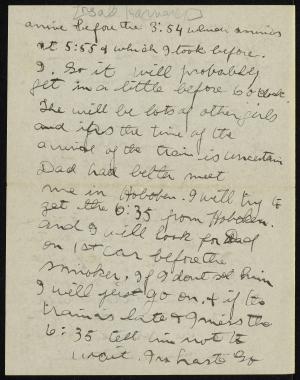 arrive before the 3:54 which arrives
at 5:55 & which I took before.
I. So it will probably
get in a little before 6 o'clock.
The will be lots of other girls
and if as the time of the
arrival of the train is uncertain
Dad had better meet
me in Hoboken. I will try to
get the 6:35 from Hoboken.
and I will look for Dad
on 1st car before the
smoker. If I dont see him
I will just go on, & if the
train is late & I miss the
6:35 tell him not to
wait. In haste